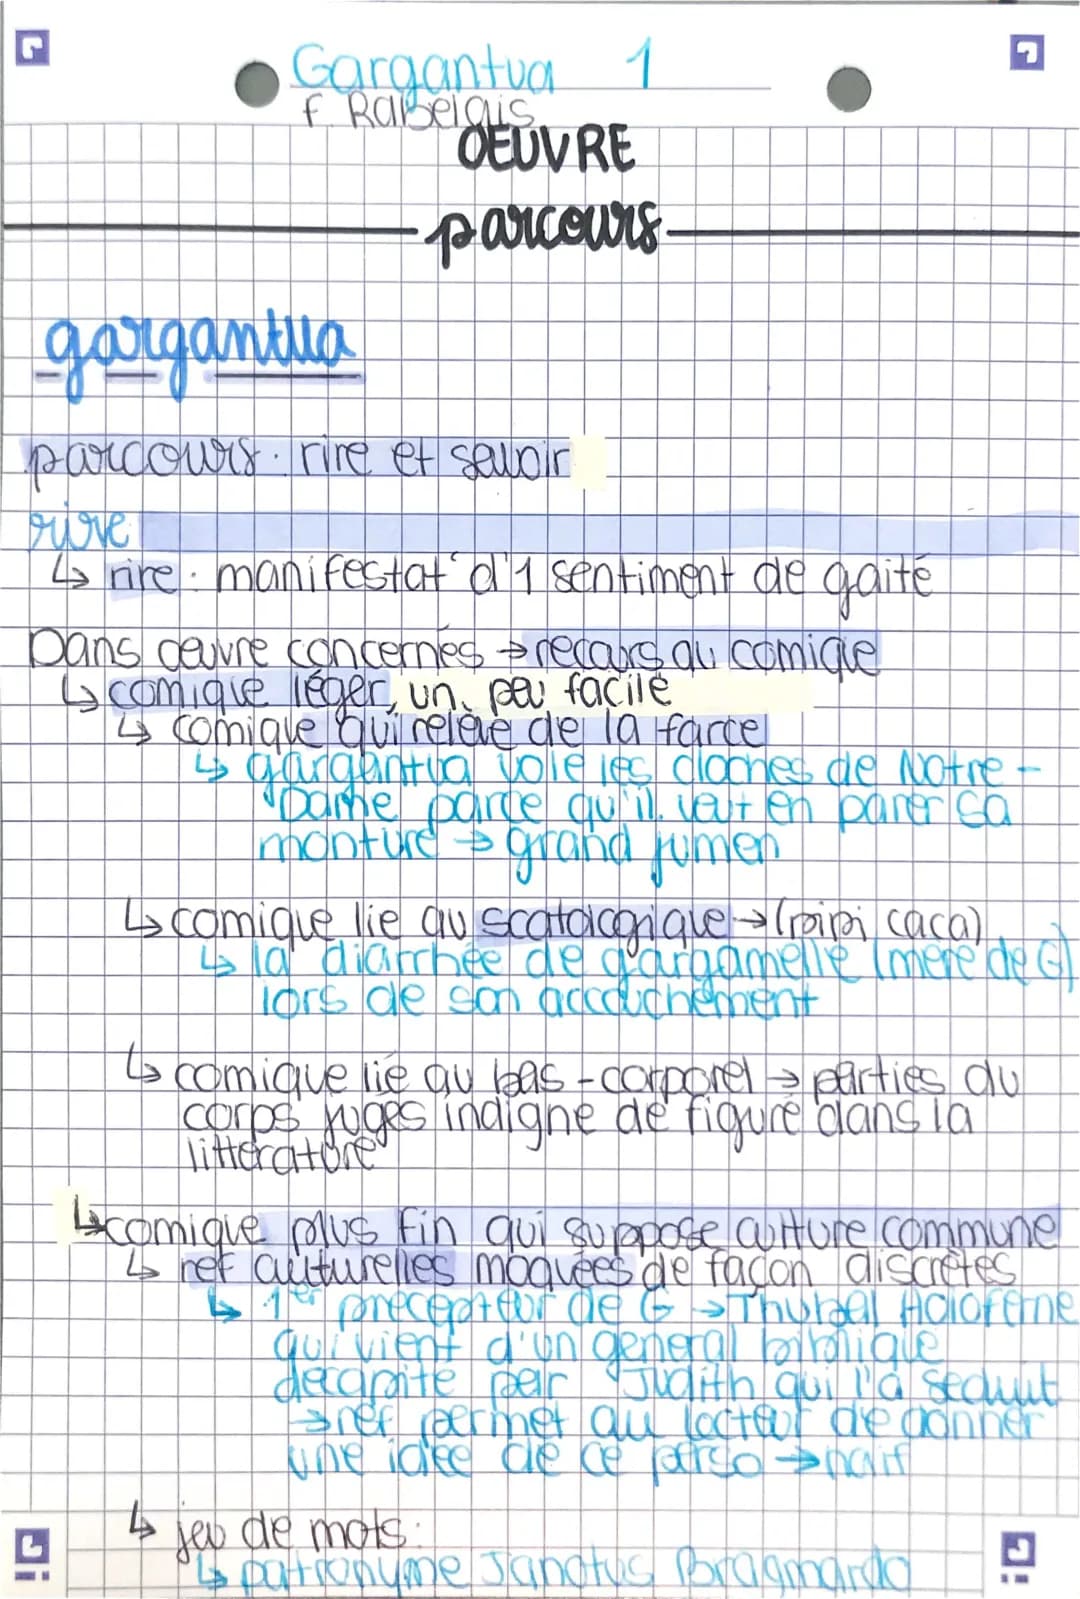 Gargantua 1
F. Rabelais
OEUVRE
parcours
gargantua
parcours : rire et savoir
rire
↳ rire : manifestat° d'1 sentiment de gaité
Dans œuvre concernés → recours au comique
↳ comique léger, un peu facile
↳ comique qui relève de la farce
↳ gargantua vole les cloches de Notre-
Dame parce qu'il veut en parer sa
monture → grand jumen
↳ comique lié au scatologique → (pipi caca)
↳ la diarrhée de gargamelle (mère de G)
lors de son accouchement
↳ comique lié au bas-corporel → parties du
corps jugés indigne de figuré dans la
littérature
↳ comique plus fin qui suppose culture commune
↳ ref culturelles moquées de façon discrètes
↳ 1er précepteur de G → Thubal Holoferne
qui vient d'un général biblique
décapité par Judith qui l'a séduit
→ ref permet au lecteur de donner
une idée de ce perso → naïf
↳ jeu de mots :
↳ patronyme Janotus Bragmardo